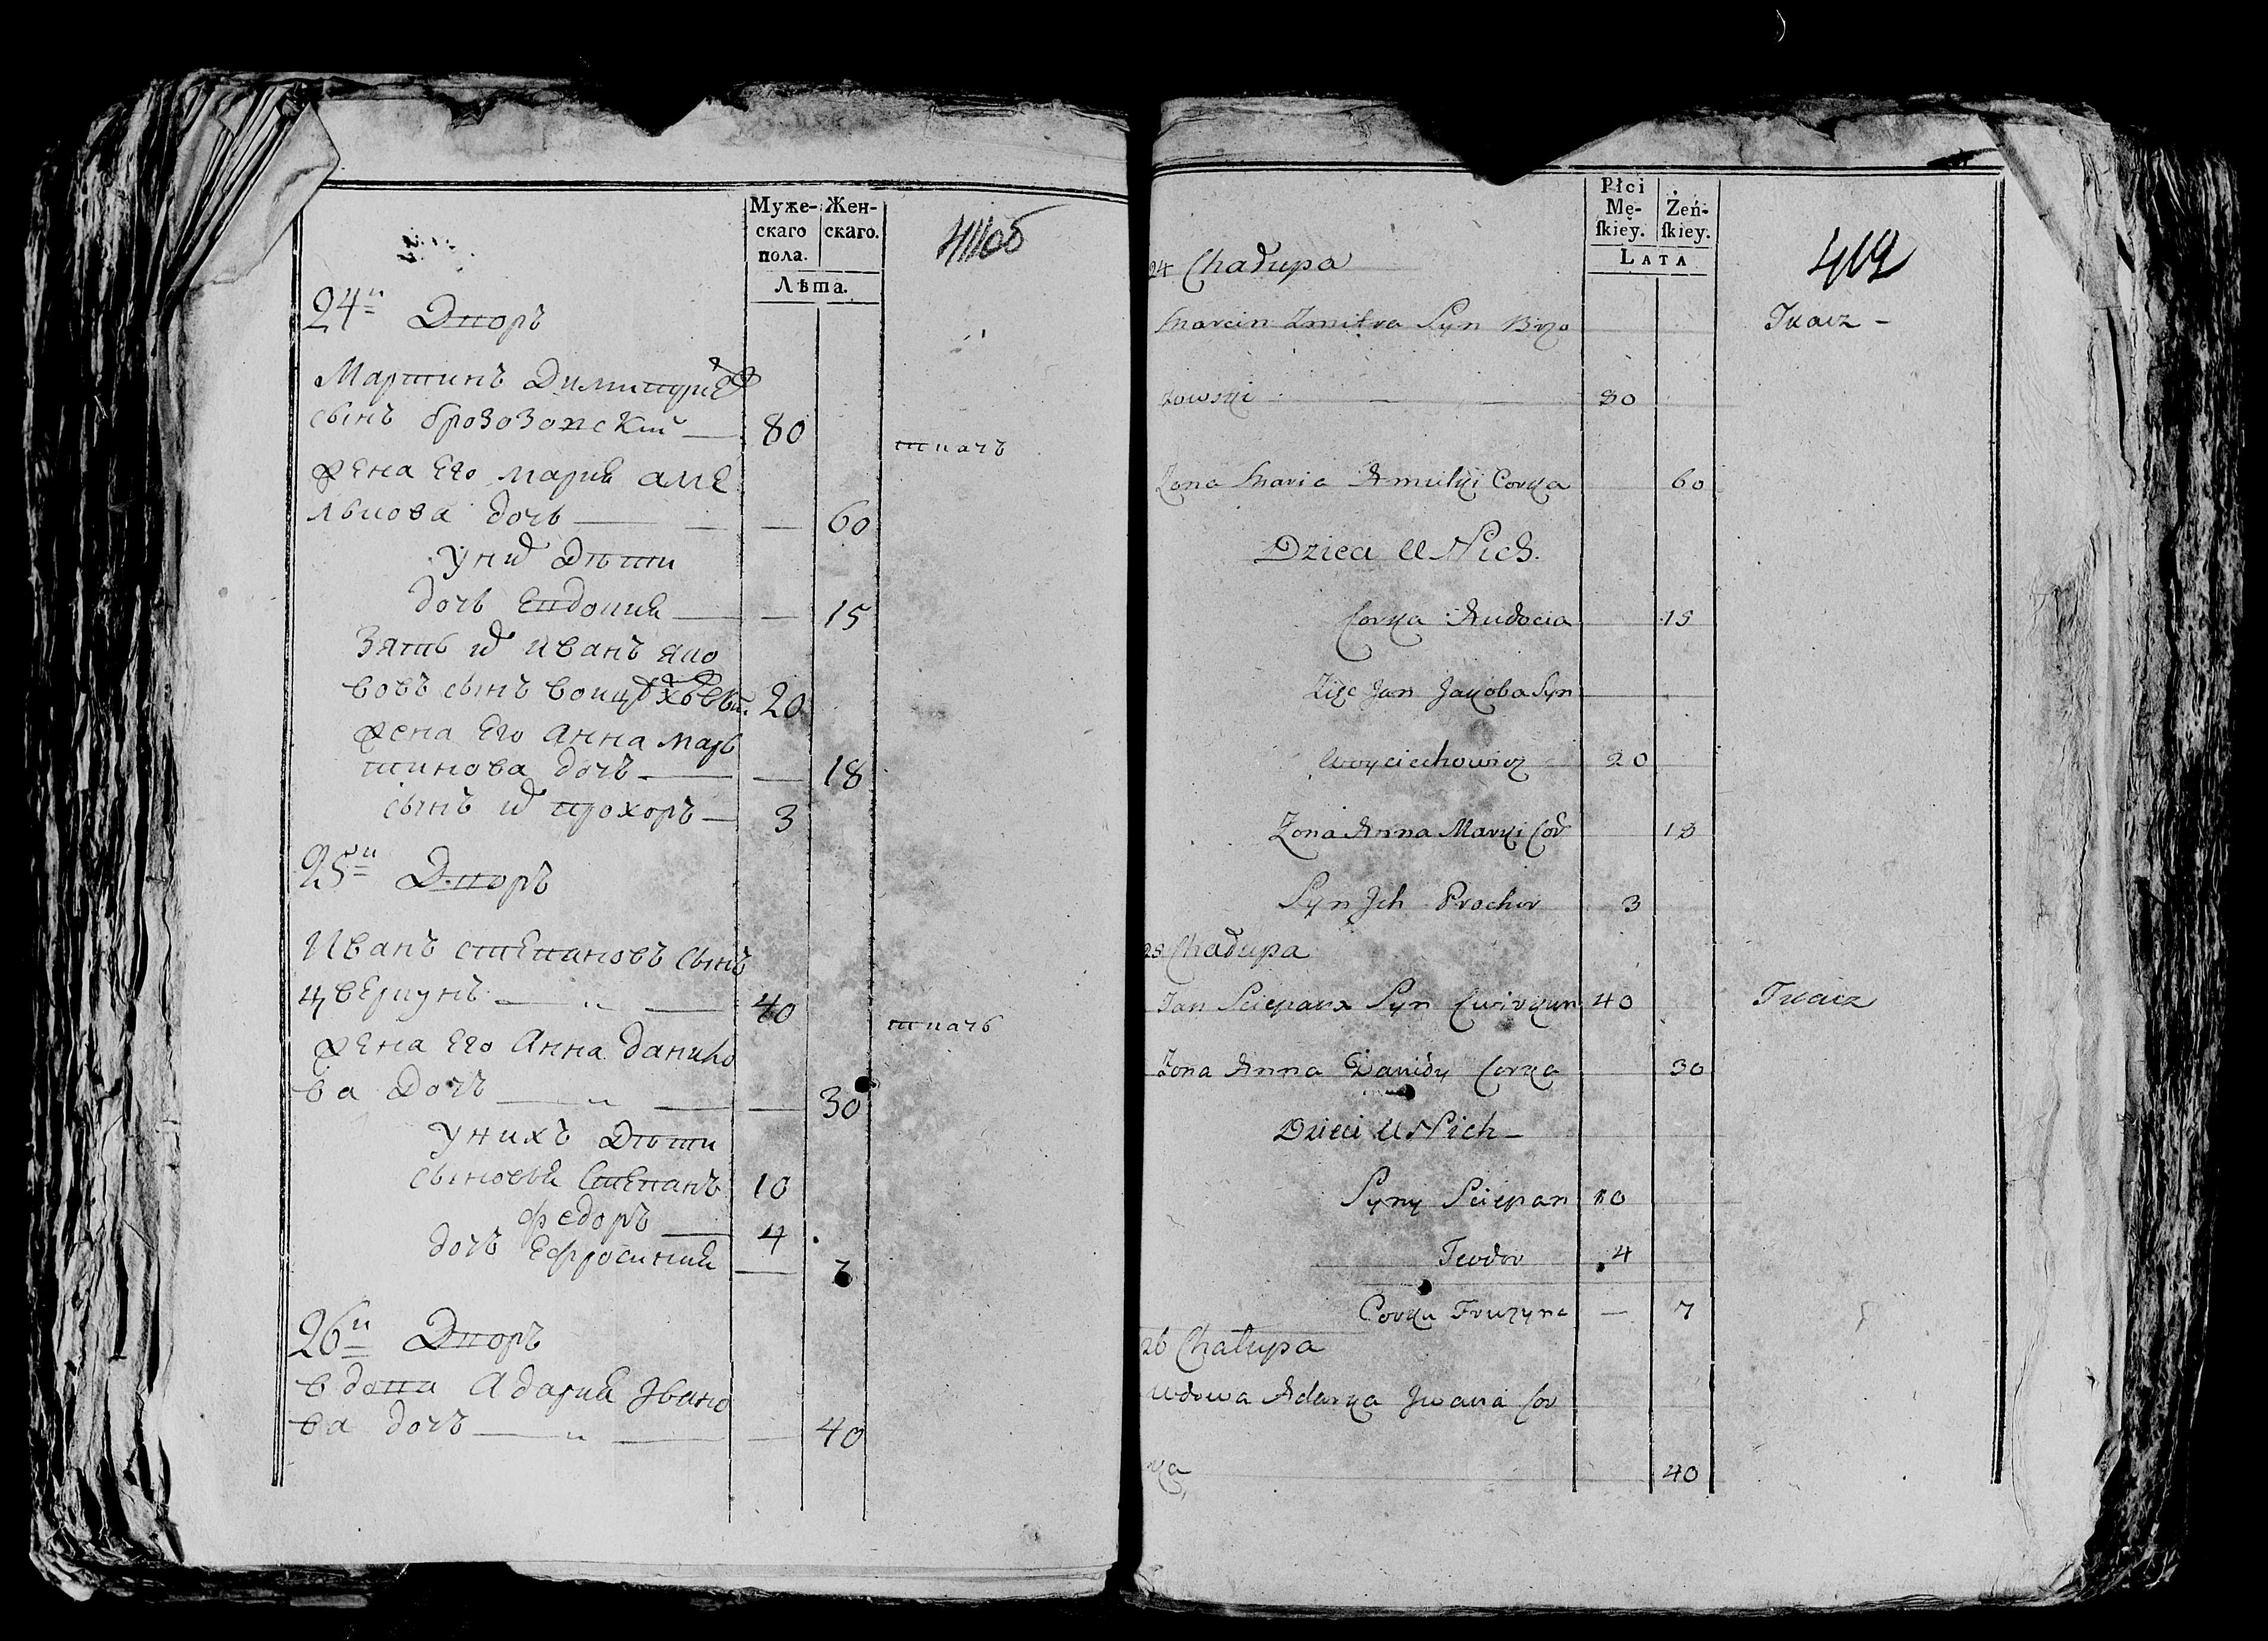 Муже-
скаго
пола.
Жен-
скаго.
Лѣта.
411об
24й Дворъ
Мартинъ Димитрие
сынъ брозовский — 80
ткачъ
жена его мария аме
льнова дочь — — — 60
У них Дѣти
дочь Евдокия — — 15
Зять их иванъ яко
вовъ сынъ 20
жена его Анна мар
тинова дочь — — 18
сынъ их прохоръ — 3
25й Дворъ
Иванъ степановъ сынъ
цверкунъ — „ — 40
ткачъ
жена его Анна данило
ва Дочь — „ — — 30
У нихъ Дѣти
сыновья Степанъ 10
федоръ — 4
дочь Ефросиния — 7
26й Дворъ
вдова Адария Ивано
ва дочь — „ — — 40
Płci
Mę-
ſkiey.
Żeń-
ſkiey.
LATA
412
24 Chałupa
Marcin Zmitra Syn Brzo
Tkacz -
zowski — — 80
Zona Maria Amulki Corka 60
Dzieci U Nich.
Corka Audocia 15
Zięc Jan Jakoba Syn
Woyciechowicz 20
Zona Anna Marki Cor 18
Syn Jch Prochor 3
25 Chałupa
Jan Sciepana Syn Cwirkun 40
Tkacz
Zona Anna Daniły Corka 30
Dzieci U Nich -
Syny Sciepan 10
Teodor 4
Corka Fruzyna — 7
26 Chałupa
Wdowa Adarka Jwana Cor
ka 40